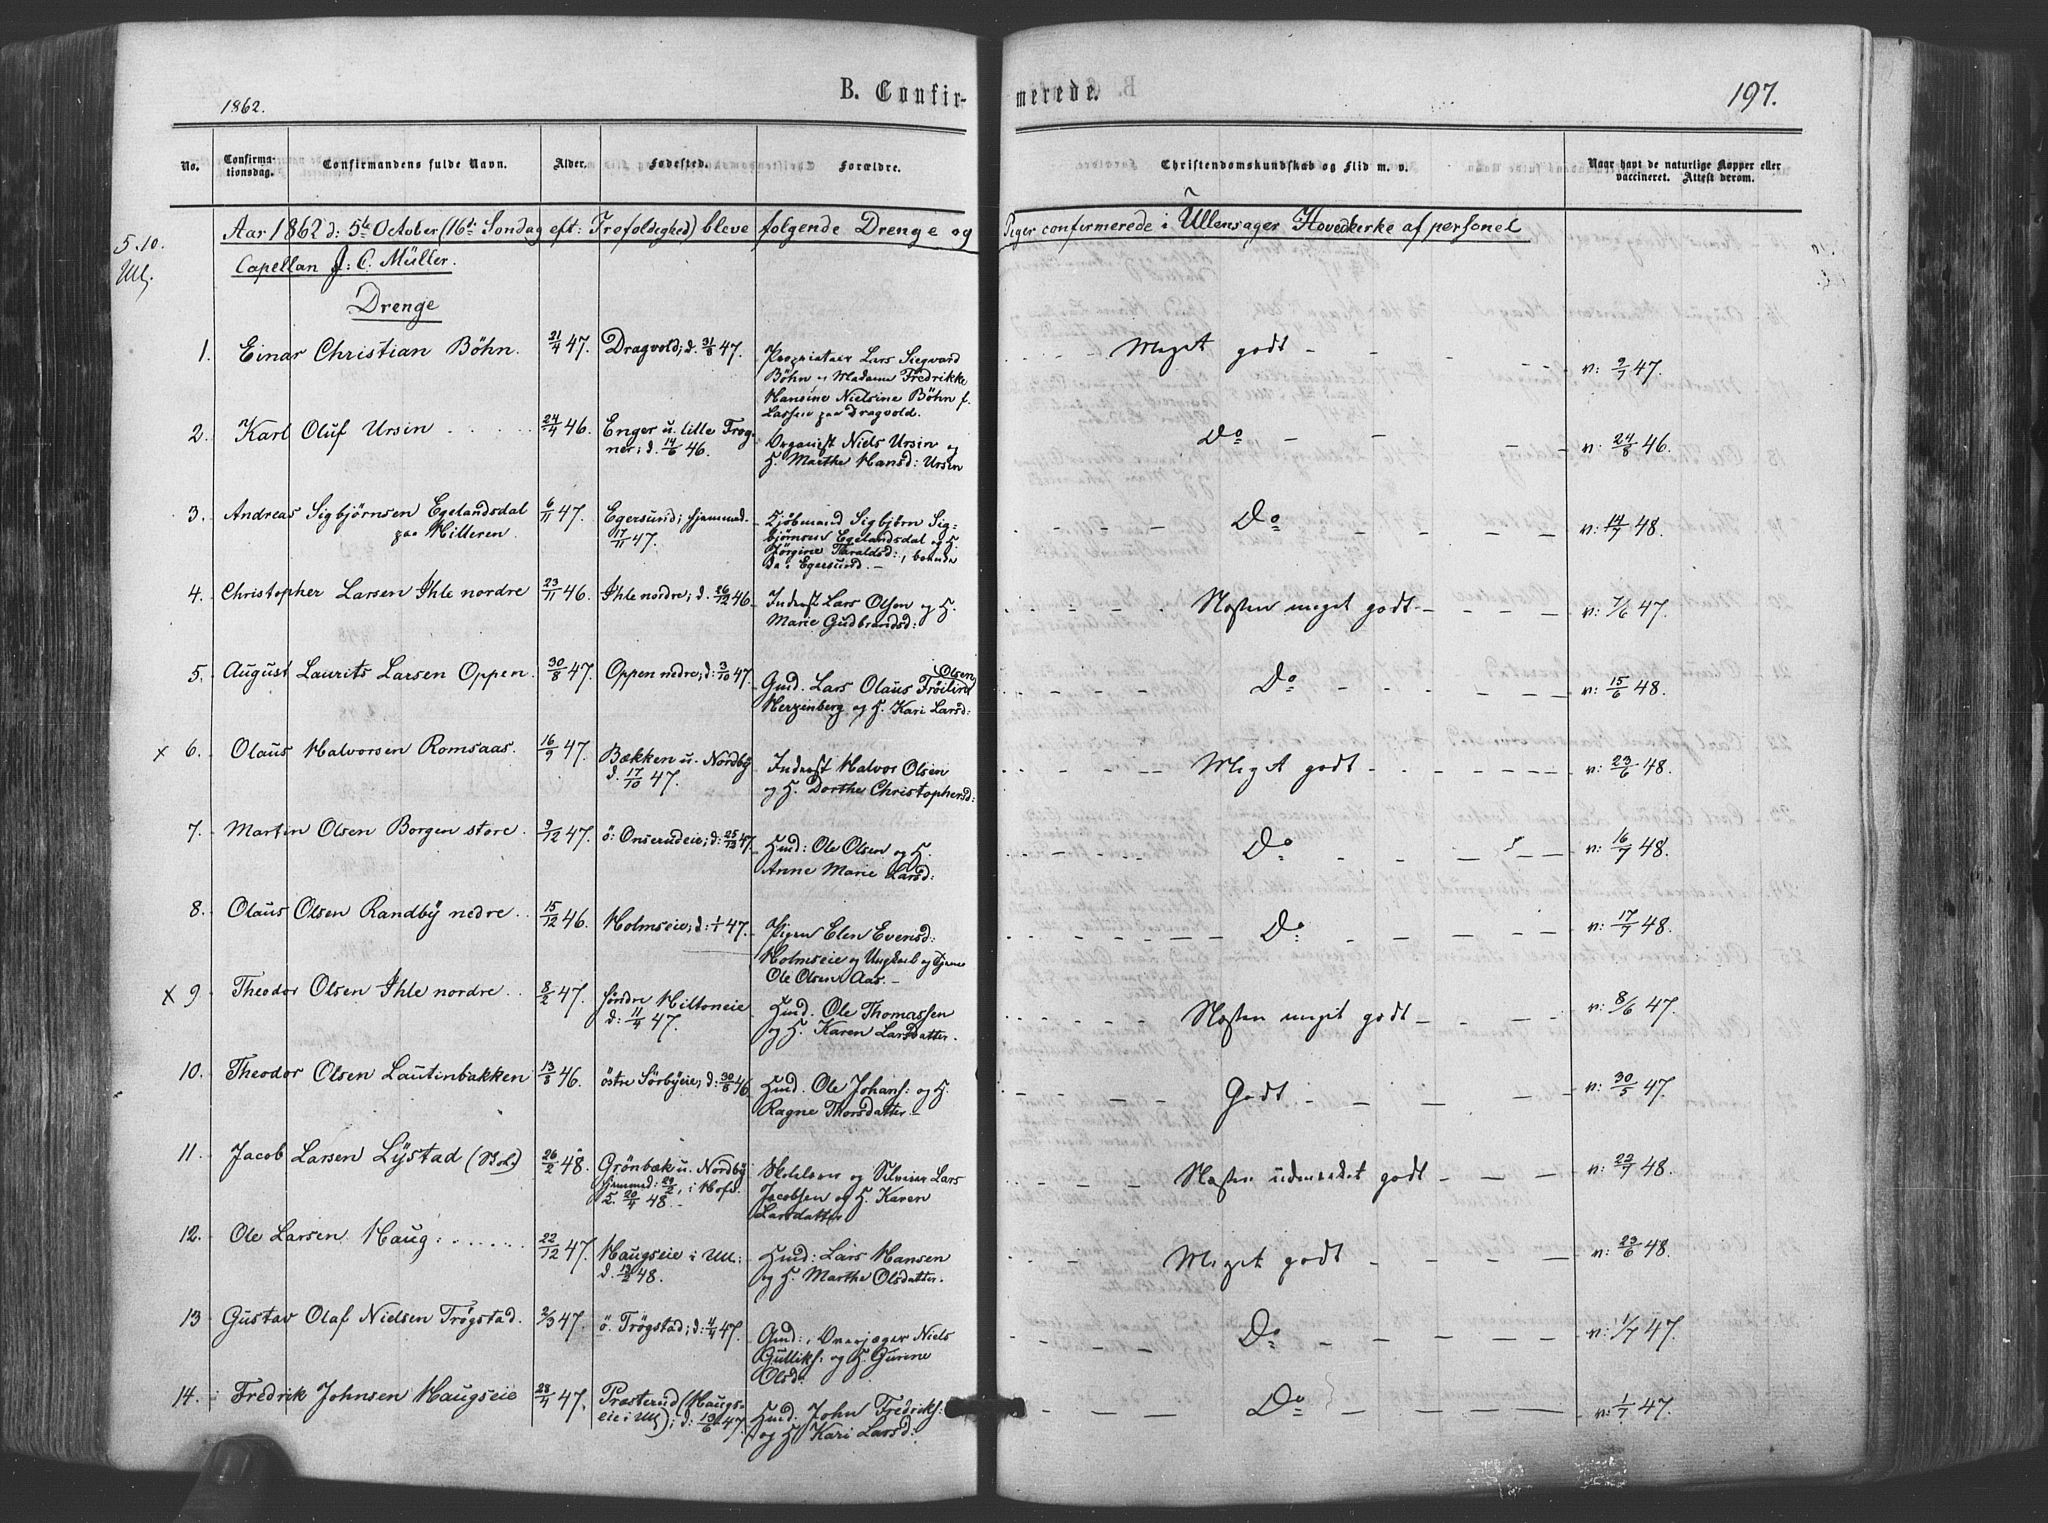 1862.
B. Confir-
merede.
197.
No.
Confirma-
tionsdag.
Confirmandens fulde Navn.
Alder.
Fødested.
Forældre.
Christendomskundskab og Flid m. v.
Naar havt de naturlige Kopper eller
vaccineret. Attest derom.
5.10.
Ull.
Aar 1862 d: 5te October (16de Søndag eft: Trefoldighed) bleve følgende Drenge og Piger confirmerede i Ullensager Hovedkirke af personel
Capellan J: C. Müller.
Drenge
1. Einar Christian Bøhn. 21/4 47. Dragvold; d. 31/8 47. Proprietair Lars Siegvard Meget godt v: 2/7 47.
Bøhn og Madame Fredrikke
Hansine Nielsine Bøhn f.
Lassen paa Dragvold.
2. Karl Oluf Ursin 24/4 46. Enger u. lille Frog- Organist Niels Ursin og Do v: 24/8 46.
ner; d. 14/6 46. H. Marthe Hansd: Ursin
3. Andreas Sigbjørnsen Egelandsdal 6/11 47. Egersund; hjemmed. Kjøbmand Sigbjørn Sig- Do v: 14/7 48.
paa Hilleren. 17/11 47. bjørnsen Egelandsdal og H.
Jørgine Taraldsd:, boende
i Egersund.
4. Christopher Larsen Ihle nordre 23/11 46. Ihle nordre; d. 26/12 46 Inderst Lars Olsen og H. Næsten meget godt v: 7/6 47.
Marie Gudbrandsd:
5. August Laurits Larsen Oppen. 30/8 47. Oppen nedre; d: 3/10 47. Gmd. Lars Olaus Olsen Do v: 15/6 48.
Herzenberg og H. Kari Larsd:
x 6. Olaus Halvorsen Romsaas. 16/9 47. Bækken u. Nordby Inderst Halvor Olsen Meget godt v: 23/6 48.
d. 17/10 47. og H. Dorthe Christophersd:
7. Martin Olsen Borgen store. 9/12 47. ö: Onserudeie; d: 25/12 47. Husmd: Ole Olsen og H. Do v: 16/7 48.
Anne Marie Larsd:
8. Olaus Olsen Randby nedre 15/12 46. Holmseie; d: 1/1 47. Pigen Elen Evensd: Do v: 17/7 48.
Holmseie og Ungkarl og Tjener
Ole Olsen Aas.
x 9 Theodor Olsen Ihle nordre 8/2 47. søndre Hiltoneie Husmd. Ole Thomassen Næsten meget godt v: 8/6 47.
d: 11/4 47. og H. Karen Larsdatter.
10. Theodor Olsen Lautinbakken 13/8 46. østre Sørbyeie; d: 30/8 46 Husmd. Ole Johans: og H. Godt v: 30/5 47.
Ragne Thorsdatter
11. Jacob Larsen Lÿstad (Bol.) 26/2 48. Grönbæk u. Nordby Skolelærer og Lars Næsten udmærket godt v: 22/7 48.
hjemmed: 29/2, i Hofs Jacobsen og H. Karen
K. 20/4 48. Larsdatter
12. Ole Larsen Haug: 22/12 47. Haugseie i Ull: Husmd: Lars Hansen Meget godt v: 23/6 48.
d. 13/2 48. og H. Marthe Olsdatter.
13 Gustav Olaf Nielsen Trøgstad. 2/3 47. ö. Trøgstad; d: 4/4 47. Gmd:, Overjæger Niels Do v: 1/7 47.
Gulliks: og H. Gurine
Olsd:
14. Fredrik Johnsen Haugseie 28/4 47. Præsterud (Haugs- Husmd: John Fredriks: Do v: 1/7 47.
eie i Ull); d: 13/6 47. og H. Kari Larsd: